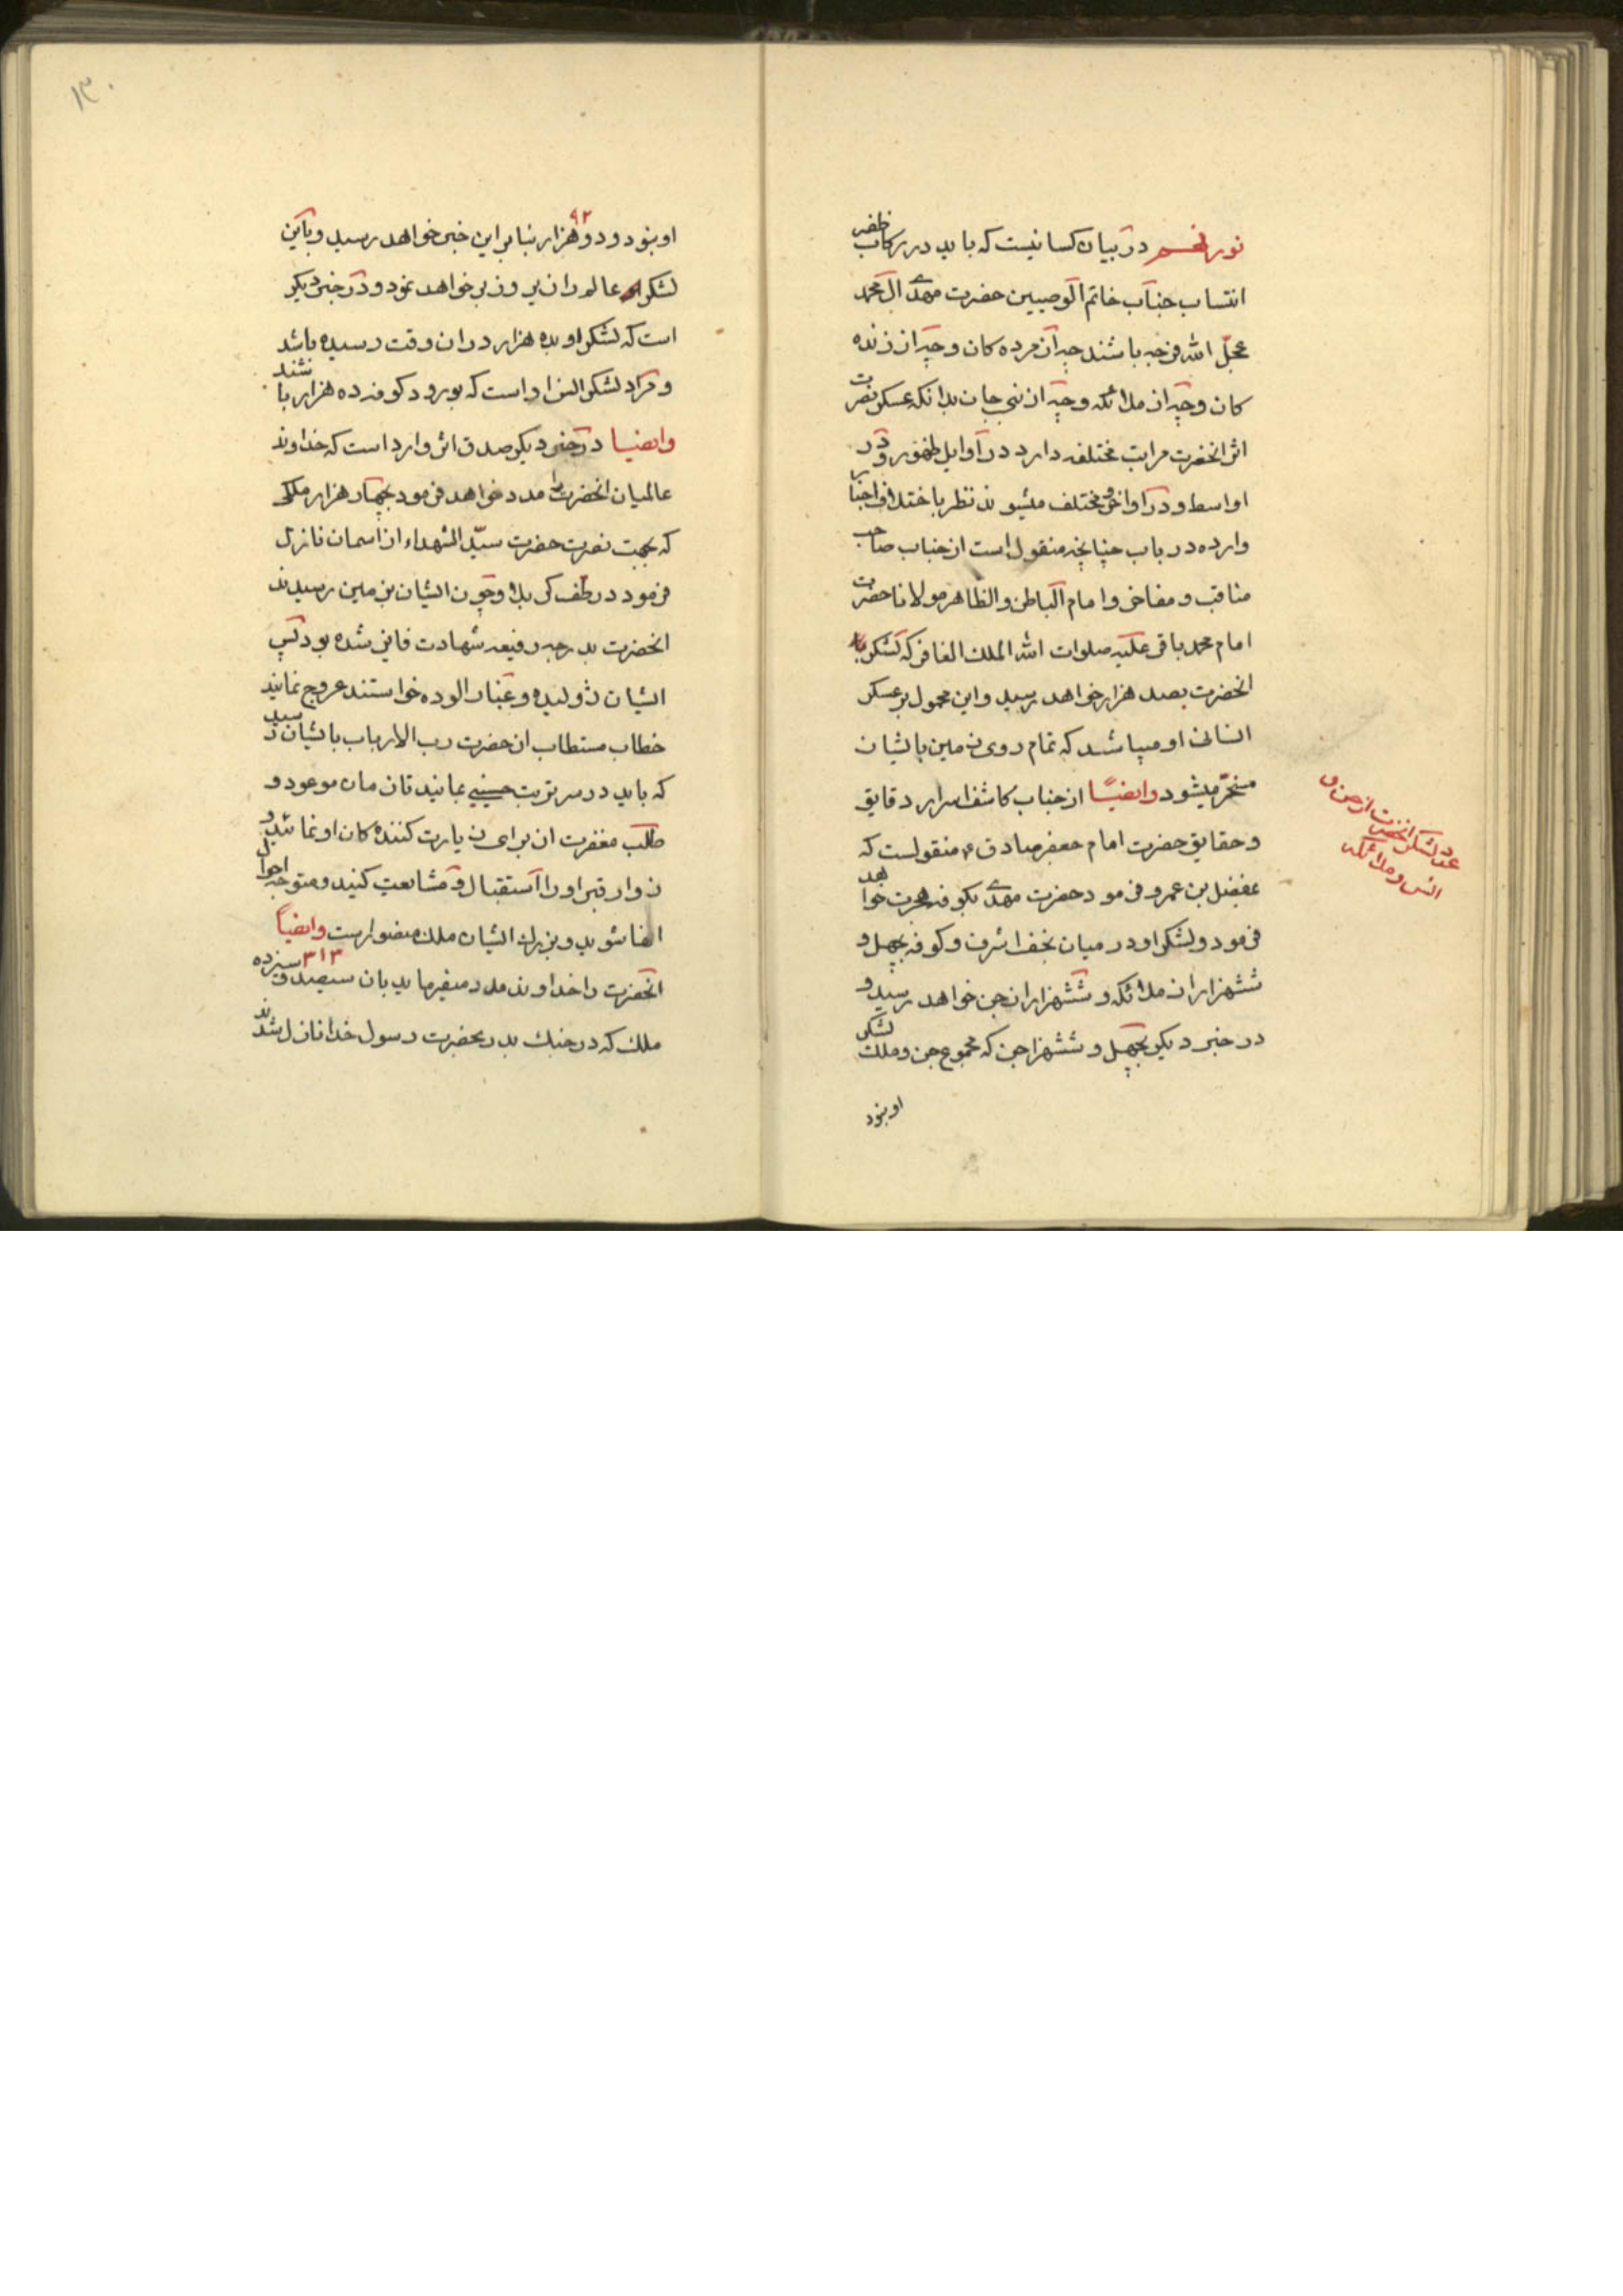 نور پنجم در بیان کسانیست که باید در رکاب ظفر
انتساب جناب خاتم الوصیین حضرت مهدی ال محمد
عجل الله فرجه باشند چه از مرده کان و چه از زنده
کان و چه از ملائکه و چه از بنی جان بدانکه عسکر نصرت
اثر انحضرت مراتب مختلفه دارد در اوایل ظهور و در
اواسط و در اواخر مختلف میشوند نظر باختلاف اخبار
وارده در باب چنانچه منقول است از جناب صاحب
مناقب و مفاخر و امام الباطن و الظاهر مولانا حضرت
امام محمد باقر علیه صلوات الله الملك الغافر که لشکر
انحضرت بصد هزار خواهد رسید و این محمول بر عسکر
انسانی او میباشد که تمام روی زمین بایشان
مسخر میشود وایضًا از جناب کاشف اسرار دقایق
و حقایق حضرت امام جعفر صادق ع منقولست که
بمفضل بن عمرو فرمود حضرت مهدی بکوفه هجرت خواهد
فرمود و لشکر او در میان نجف اشرف و کوفه بچهل و
ششهزار از ملائکه و ششهزار از جن خواهد رسید و
در خبر دیکر بچهل و ششهزار جن که مجموع جن و ملك لشکر
او بنود
عدد لشکر انحضرت از جن و
انس و ملائکه
۱۳۰
او بنود و دو هزار بنابر این خبر خواهد رسید و باین
۹۲
لشکر عالم را زیر و زبر خواهد نمود و در خبر دیکر
است که لشکر او بده هزار در ان وقت رسیده باشد
و مراد لشکر انس او است که بورود کوفه ده هزار باشند
وایضا در خبر دیکر صدق اثر وارد است که خداوند
عالمیان انحضرت را مدد خواهد فرمود بچهار هزار ملکی
که بجهت نصرت حضرت سید الشهداء از اسمان نازل
فرمود در طف کربلا و چون ایشان بزمین رسیدند
انحضرت بدرجه رفیعه شهادت فایز شده بود پس
ایشان ژولیده و غبار الوده خواستند عروج نمایند
خطاب مستطاب از حضرت رب الارباب بایشان رسید
که باید در سر تربت حسینی بمانید تا زمان موعود و
طلب مغفرت از برای زیارت کننده کان او نمائید و
زوار قبر او را استقبال و مشایعت کنید و متوجه احوال
انها شوید و بزرك ایشان ملك منصور است وایضاً
انحضرت را خداوند مدد میفرماید بان سیصد و سیزده
۳۱۳
ملك که در جنك بدر بحضرت رسول خدا نازل شدند